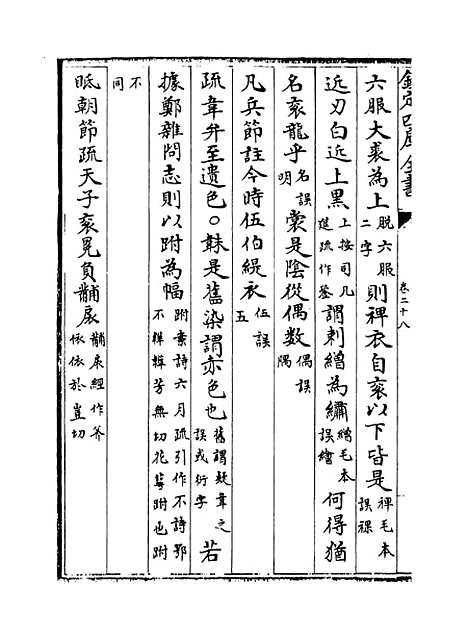 欽定四庫全書 卷二十八
六服大裘為上脱六服二字則裨衣自衮以下皆是裨毛本誤裸
近刃白近上黑上按司几筵疏作蓋謂刺繒為繡繒毛本誤繪何得猶
名衮龍乎名誤明裳是陰從偶數偶誤隅
凡兵節註今時伍伯緹衣伍誤五
疏韋弁至遺色○韎是舊染謂赤色也舊謂疑韋之誤或衍字若
據鄭雜問志則以跗為幅跗案詩六月疏引作不詩鄂不韡韡芳無切花萼跗也跗
不同
眡朝節疏天子衮冕負黼扆黼扆經作斧依依於豈切